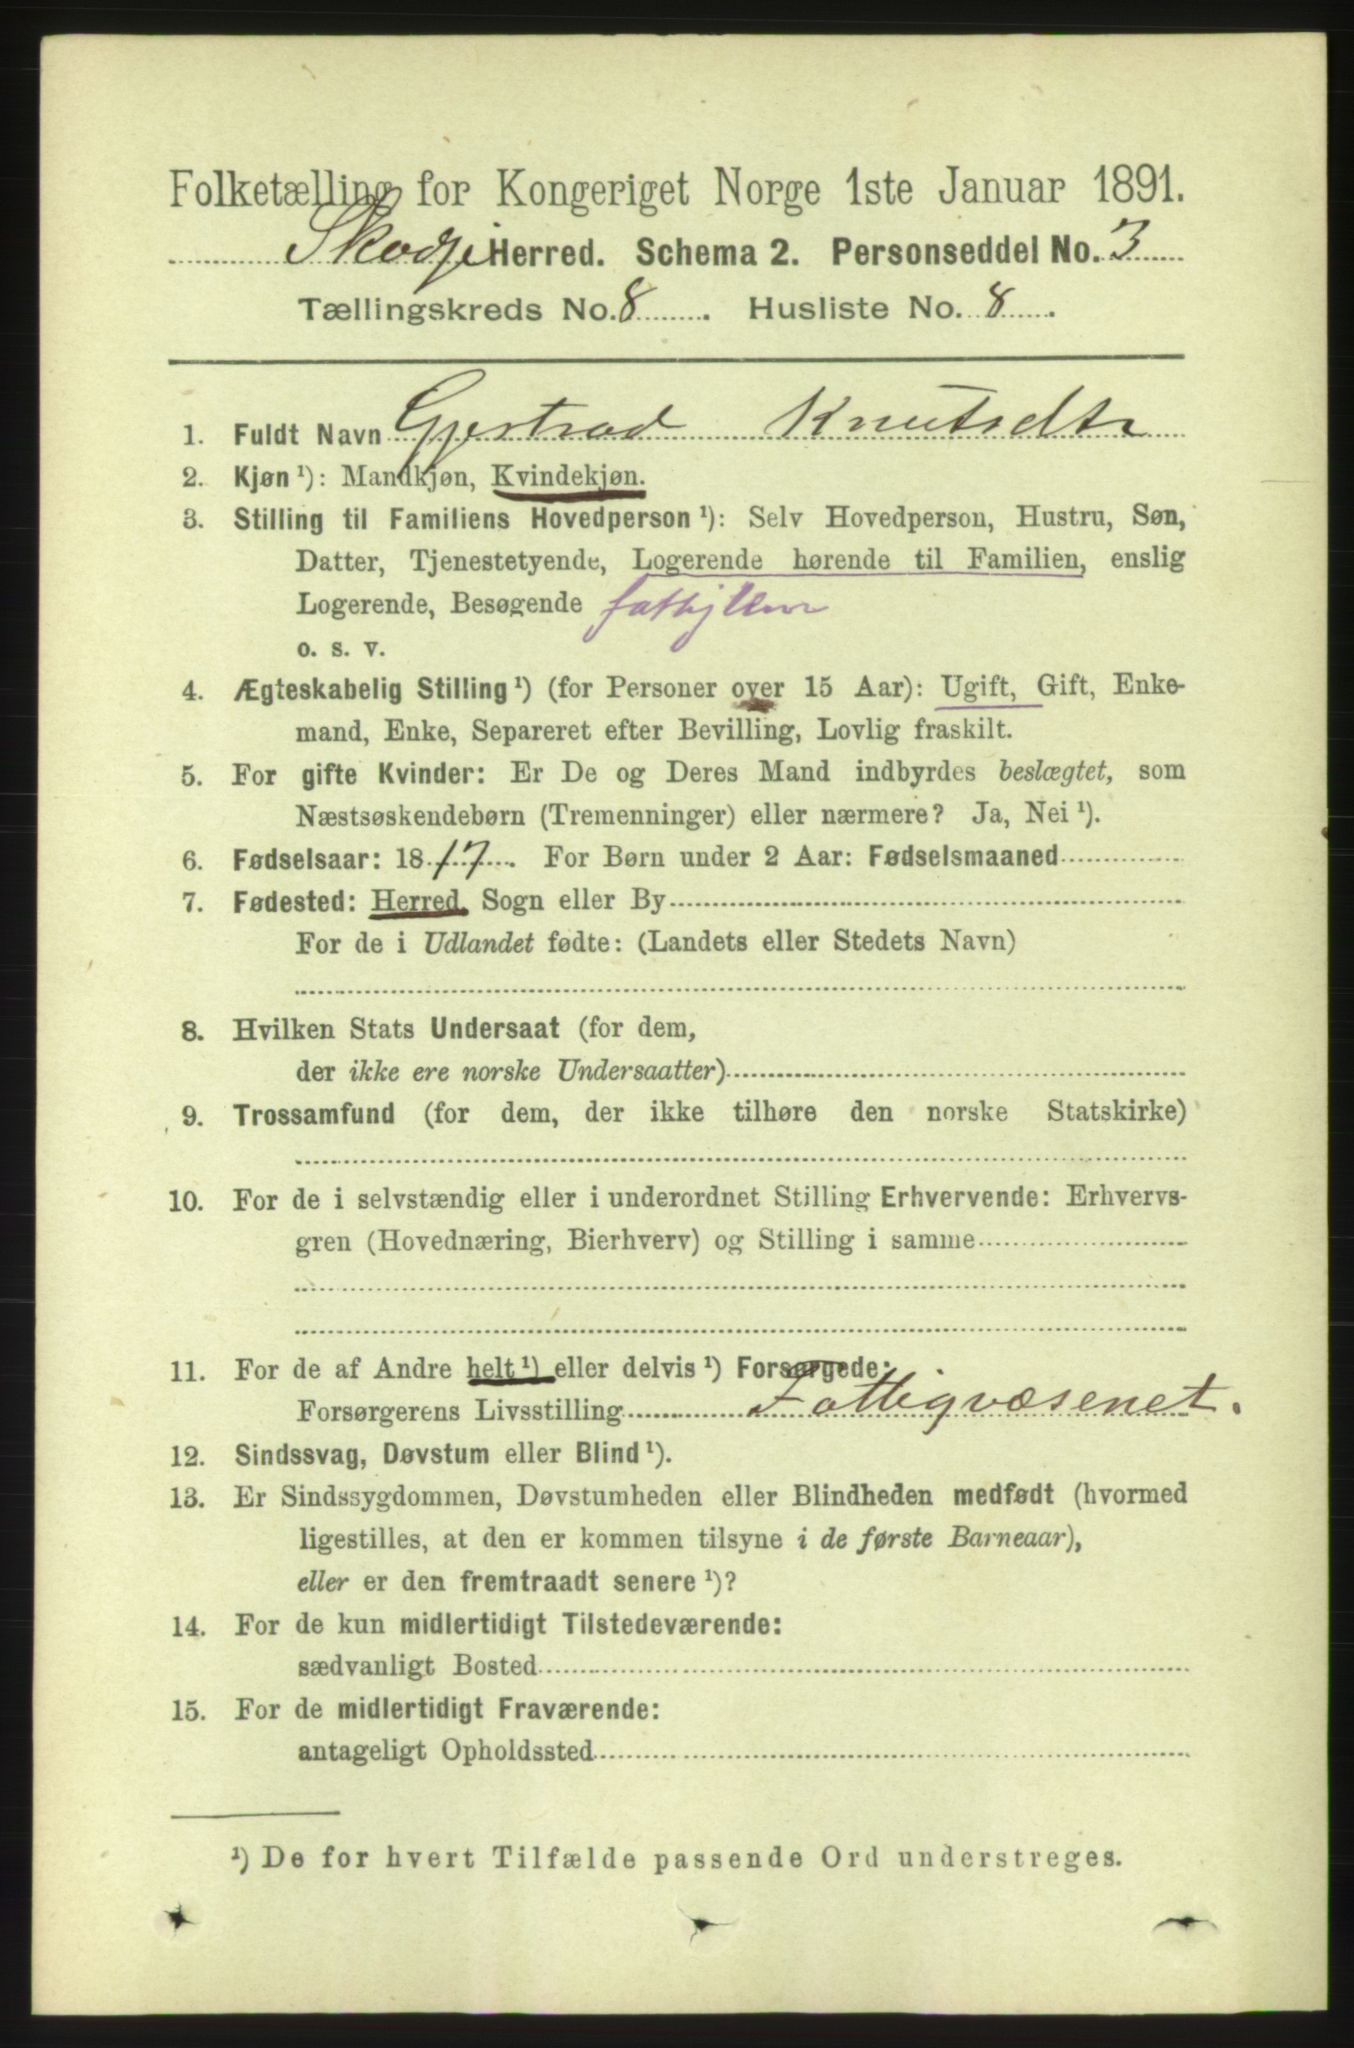 Folketælling for Kongeriget Norge 1ste Januar 1891.
Skodje Herred. Schema 2. Personseddel No. 3
Tællingskreds No. 8. Husliste No. 8.
1. Fuldt Navn Gjertrud Knutsdtr
2. Kjøn ¹): Mandkjøn, Kvindekjøn.
3. Stilling til Familiens Hovedperson ¹): Selv Hovedperson, Hustru, Søn,
Datter, Tjenestetyende, Logerende hørende til Familien, enslig
Logerende, Besøgende
o. s. v.
4. Ægteskabelig Stilling ¹) (for Personer over 15 Aar): Ugift, Gift, Enke-
mand, Enke, Separeret efter Bevilling, Lovlig fraskilt.
5. For gifte Kvinder: Er De og Deres Mand indbyrdes beslægtet, som
Næstsøskendebørn (Tremenninger) eller nærmere? Ja, Nei ¹).
6. Fødselsaar: 1817. For Børn under 2 Aar: Fødselsmaaned
7. Fødested: Herred, Sogn eller By
For de i Udlandet fødte: (Landets eller Stedets Navn)
8. Hvilken Stats Undersaat (for dem,
der ikke ere norske Undersaatter)
9. Trossamfund (for dem, der ikke tilhøre den norske Statskirke)
10. For de i selvstændig eller i underordnet Stilling Erhvervende: Erhvervs-
gren (Hovednæring, Bierhverv) og Stilling i samme
11. For de af Andre helt ¹) eller delvis ¹) Forsørgede:
Forsørgerens Livsstilling Fattigvæsenet.
12. Sindssvag, Døvstum eller Blind ¹).
13. Er Sindssygdommen, Døvstumheden eller Blindheden medfødt (hvormed
ligestilles, at den er kommen tilsyne i de første Barneaar),
eller er den fremtraadt senere ¹)?
14. For de kun midlertidigt Tilstedeværende:
sædvanligt Bosted
15. For de midlertidigt Fraværende:
antageligt Opholdssted
¹) De for hvert Tilfælde passende Ord understreges.